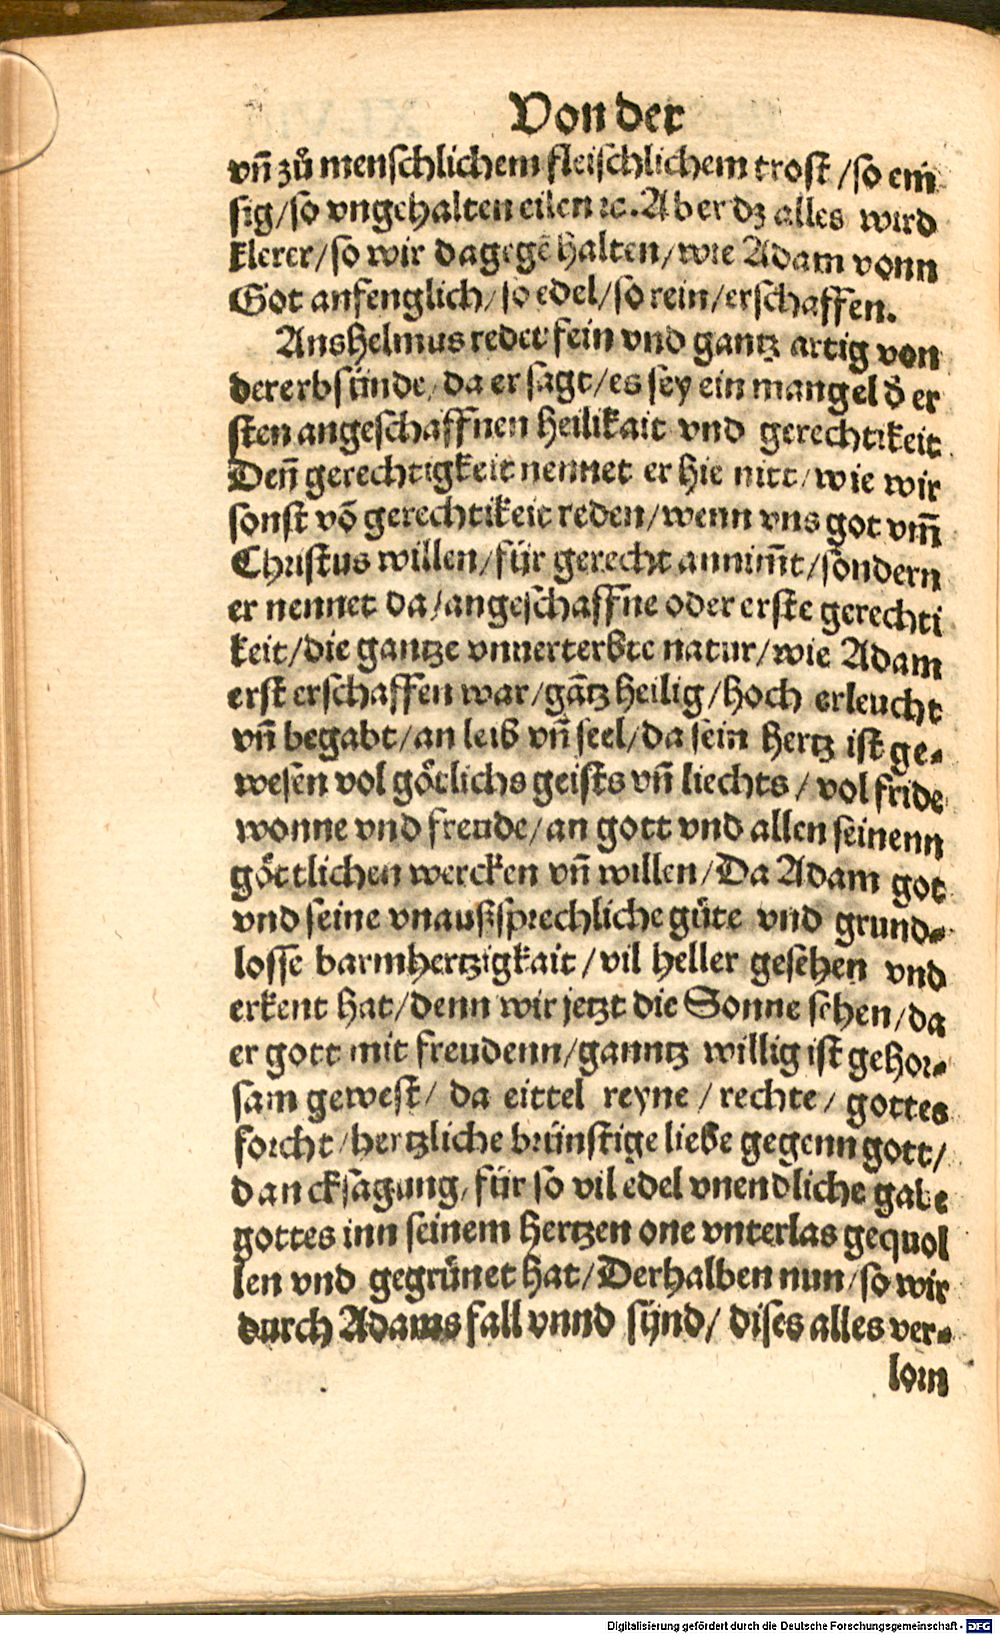 Von der
vñ zů menschlichem fleischlichem trost / so em
sig / so vngehalten eilen ꝛc. Aber dz alles wird
klerer / so wir dagegẽ halten / wie Adam vonn
Got anfenglich / so edel / so rein / erschaffen.
Anshelmus redet fein vnd gantz artig von
dererbsünde / da er sagt / es sey ein mangel d̕ er
sten angeschaffnen heilikait vnd gerechtikeit
Deñ gerechtigkeit nennet er hie nitt / wie wir
sonst võ gerechtikeit reden / wenn vns got vm̃
Christus willen / für gerecht annim̃t / sondern
er nennet da / angeschaffne oder erste gerechti
keit / die gantze vnuerterbte natur / wie Adam
erst erschaffen war / gãtz heilig / hoch erleucht
vñ begabt / an leib vñ seel / da sein hertz ist ge-
wesen vol götlichs geists vñ liechts / vol fride
wonne vnd freude / an gott vnd allen seinenn
göttlichen wercken vñ willen / Da Adam got
vnd seine vnaußsprechliche güte vnd grund-
losse barmhertzigkait / vil heller gesehen vnd
erkent hat / denn wir jetzt die Sonne sehen / da
er gott mit freudenn / ganntz willig ist gehor-
sam gewest / da eittel reyne / rechte / gottes
forcht / hertzliche brünstige liebe gegenn gott /
dancksagung / für so vil edel vnendliche gabe
gottes inn seinem hertzen one vnterlas gequol
len vnd gegrünet hat / Derhalben nun / so wir
durch Adams fall vnnd sünd / dises alles ver-
lorn
Digitalisierung gefördert durch die Deutsche Forschungsgemeinschaft - DFG